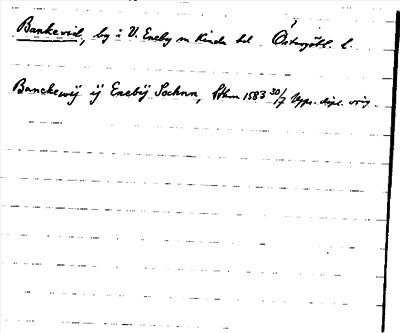 Bankevid, by i V. Eneby sn Kinda hd Östergötl. l.
Banckewij ij Enebij Sochnn, Sthm 1583 30/7 Upps. dipl. orig.